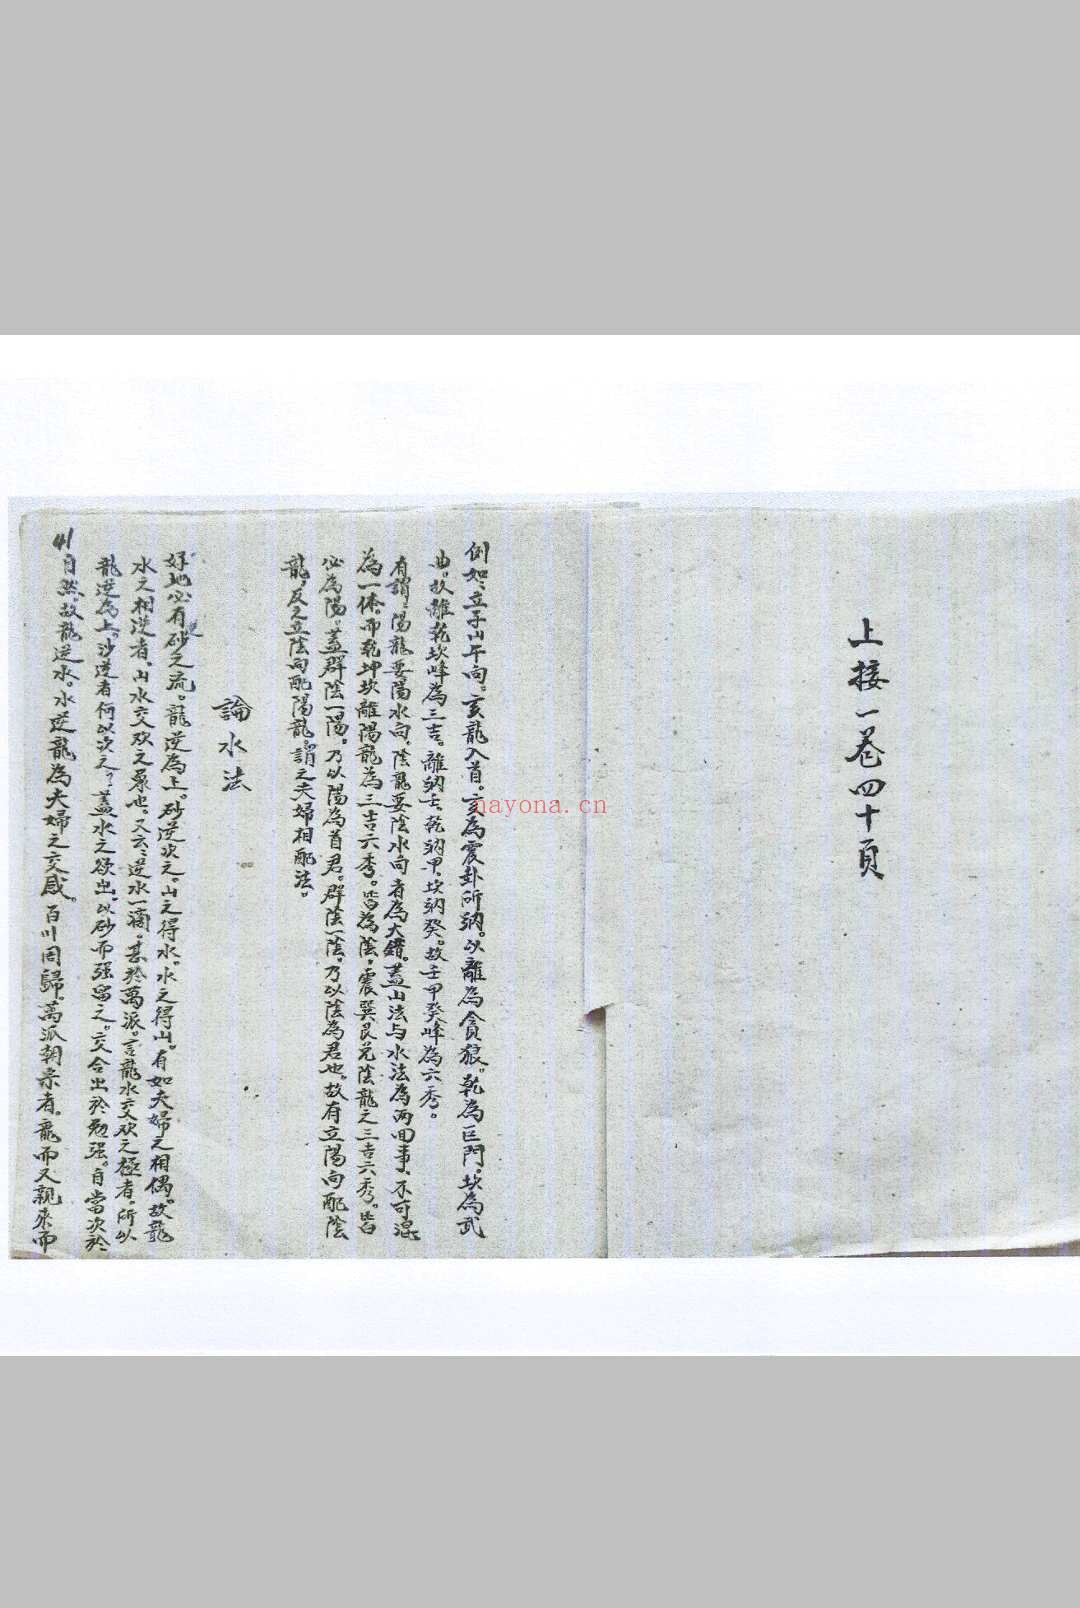 上接一卷四十頁
例如、立子山午向。亥龍入首。亥為震卦所納。以離為貪狼。乾為巨門。坎為武
曲。故離乾坎峰為三吉。離納壬。乾納甲。坎納癸。故壬甲癸峰為六秀。
有謂、陽龍要陽水向、陰龍要陰水向者為大錯。蓋山法与水法為两回事、不可混
為一條。而乾坤坎離陽龍為三吉六秀。皆為陰。震巽艮兌陰龍之三吉六秀。皆
必為陽。蓋群陰一陽。乃以陽為首君。群陰一陰。乃以陰為君也。故有立陽向配陰
龍。反之立陰向配陽龍。謂之夫婦相配法。
論水法
好地必有砂之流。龍逆為上。砂逆次之。山之得水。水之得山。有如夫婦之相偶。故龍
水之相逆者、山水交欢之象也。又云、逆水一滴。甚於萬派。言龍水交欢之極者。所以
龍逆為上。沙逆者何以次之？蓋水之欲出。以砂而强留之。交合出於勉强。自當次於
自然。故龍逆水。水逆龍為夫婦之交感。百川同歸。萬派朝宗者。龍而又親來而
nayona.cn